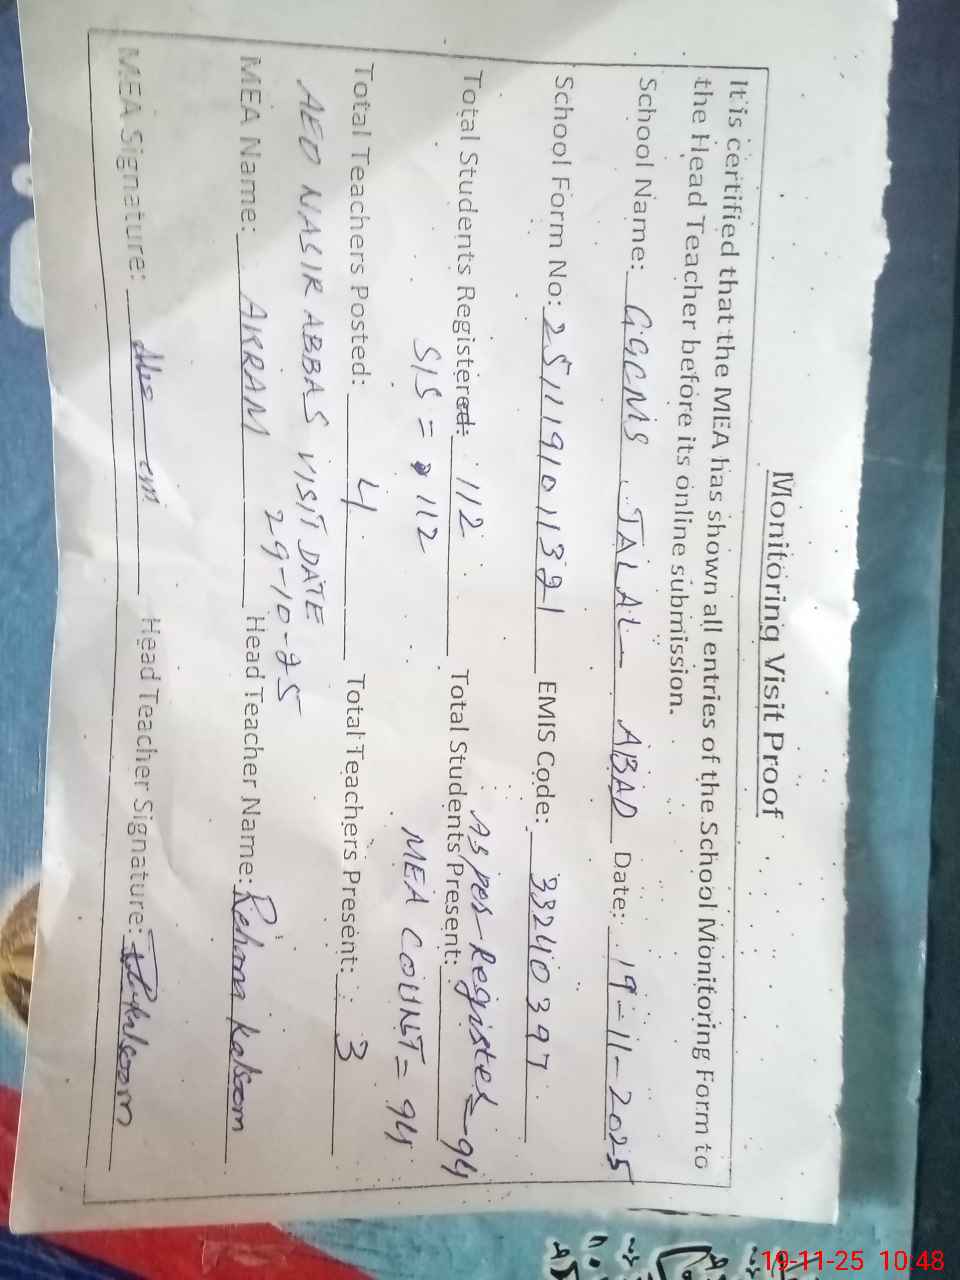 Monitoring Visit Proof
It is certified that the MEA has shown all entries of the School Monitoring Form to
the Head Teacher before its online submission.
School Name: GGCMS TALAL ABAD Date: 19-11-2025
School Form No: 2511191011321 EMIS Code: 33240397
As per Register=94
Total Students Registered: 112 Total Students Present:
SIS = 112 MEA COUNT= 94
Total Teachers Posted: 4 Total Teachers Present: 3
AEO NASIR ABBAS VISIT DATE
29-10-25
MEA Name: AKRAM Head Teacher Name: Rehma kalsoom
MEA Signature: Head Teacher Signature:
19-11-25 10:48